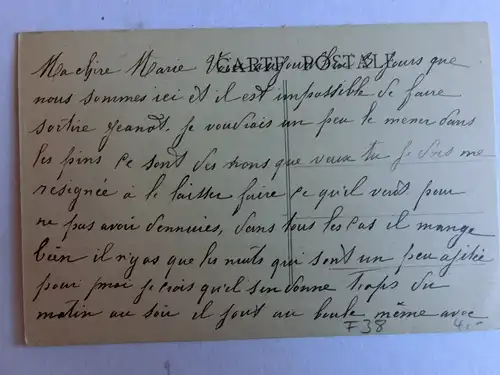 CARTE POSTALE
Ma chère Marie Voici aujourd'hui 8 jours que
nous sommes ici et il est impossible de faire
sortire Jeanot. Je voudrais un peu le mener dans
les pins ce sont des nons que veux tu je dois me
resignée à le laisser faire ce qu'il veut pour
ne pas avoir d'ennuies, dans tous les cas il mange
bien il n'y as que les nuits qui sont un peu agitée
pour moi je crois qu'il s'en donne trops du
matin au soir il fout au boule même avec
F38 4,-